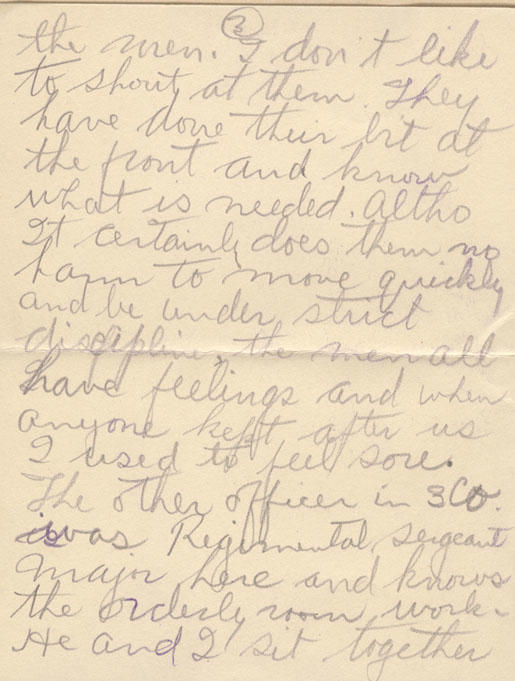 3
the men. I don't like
to shout at them. They
have done their bit at
the front and know
what is needed. Altho
It certainly does them no
harm to move quickly
and be under strict
discipline, the men all
have feelings and when
anyone kept after us
I used to feel sore.
The other officer in 3 Co.
was Regimental Sergeant
Major here and knows
the orderly room work.
He and I sit together